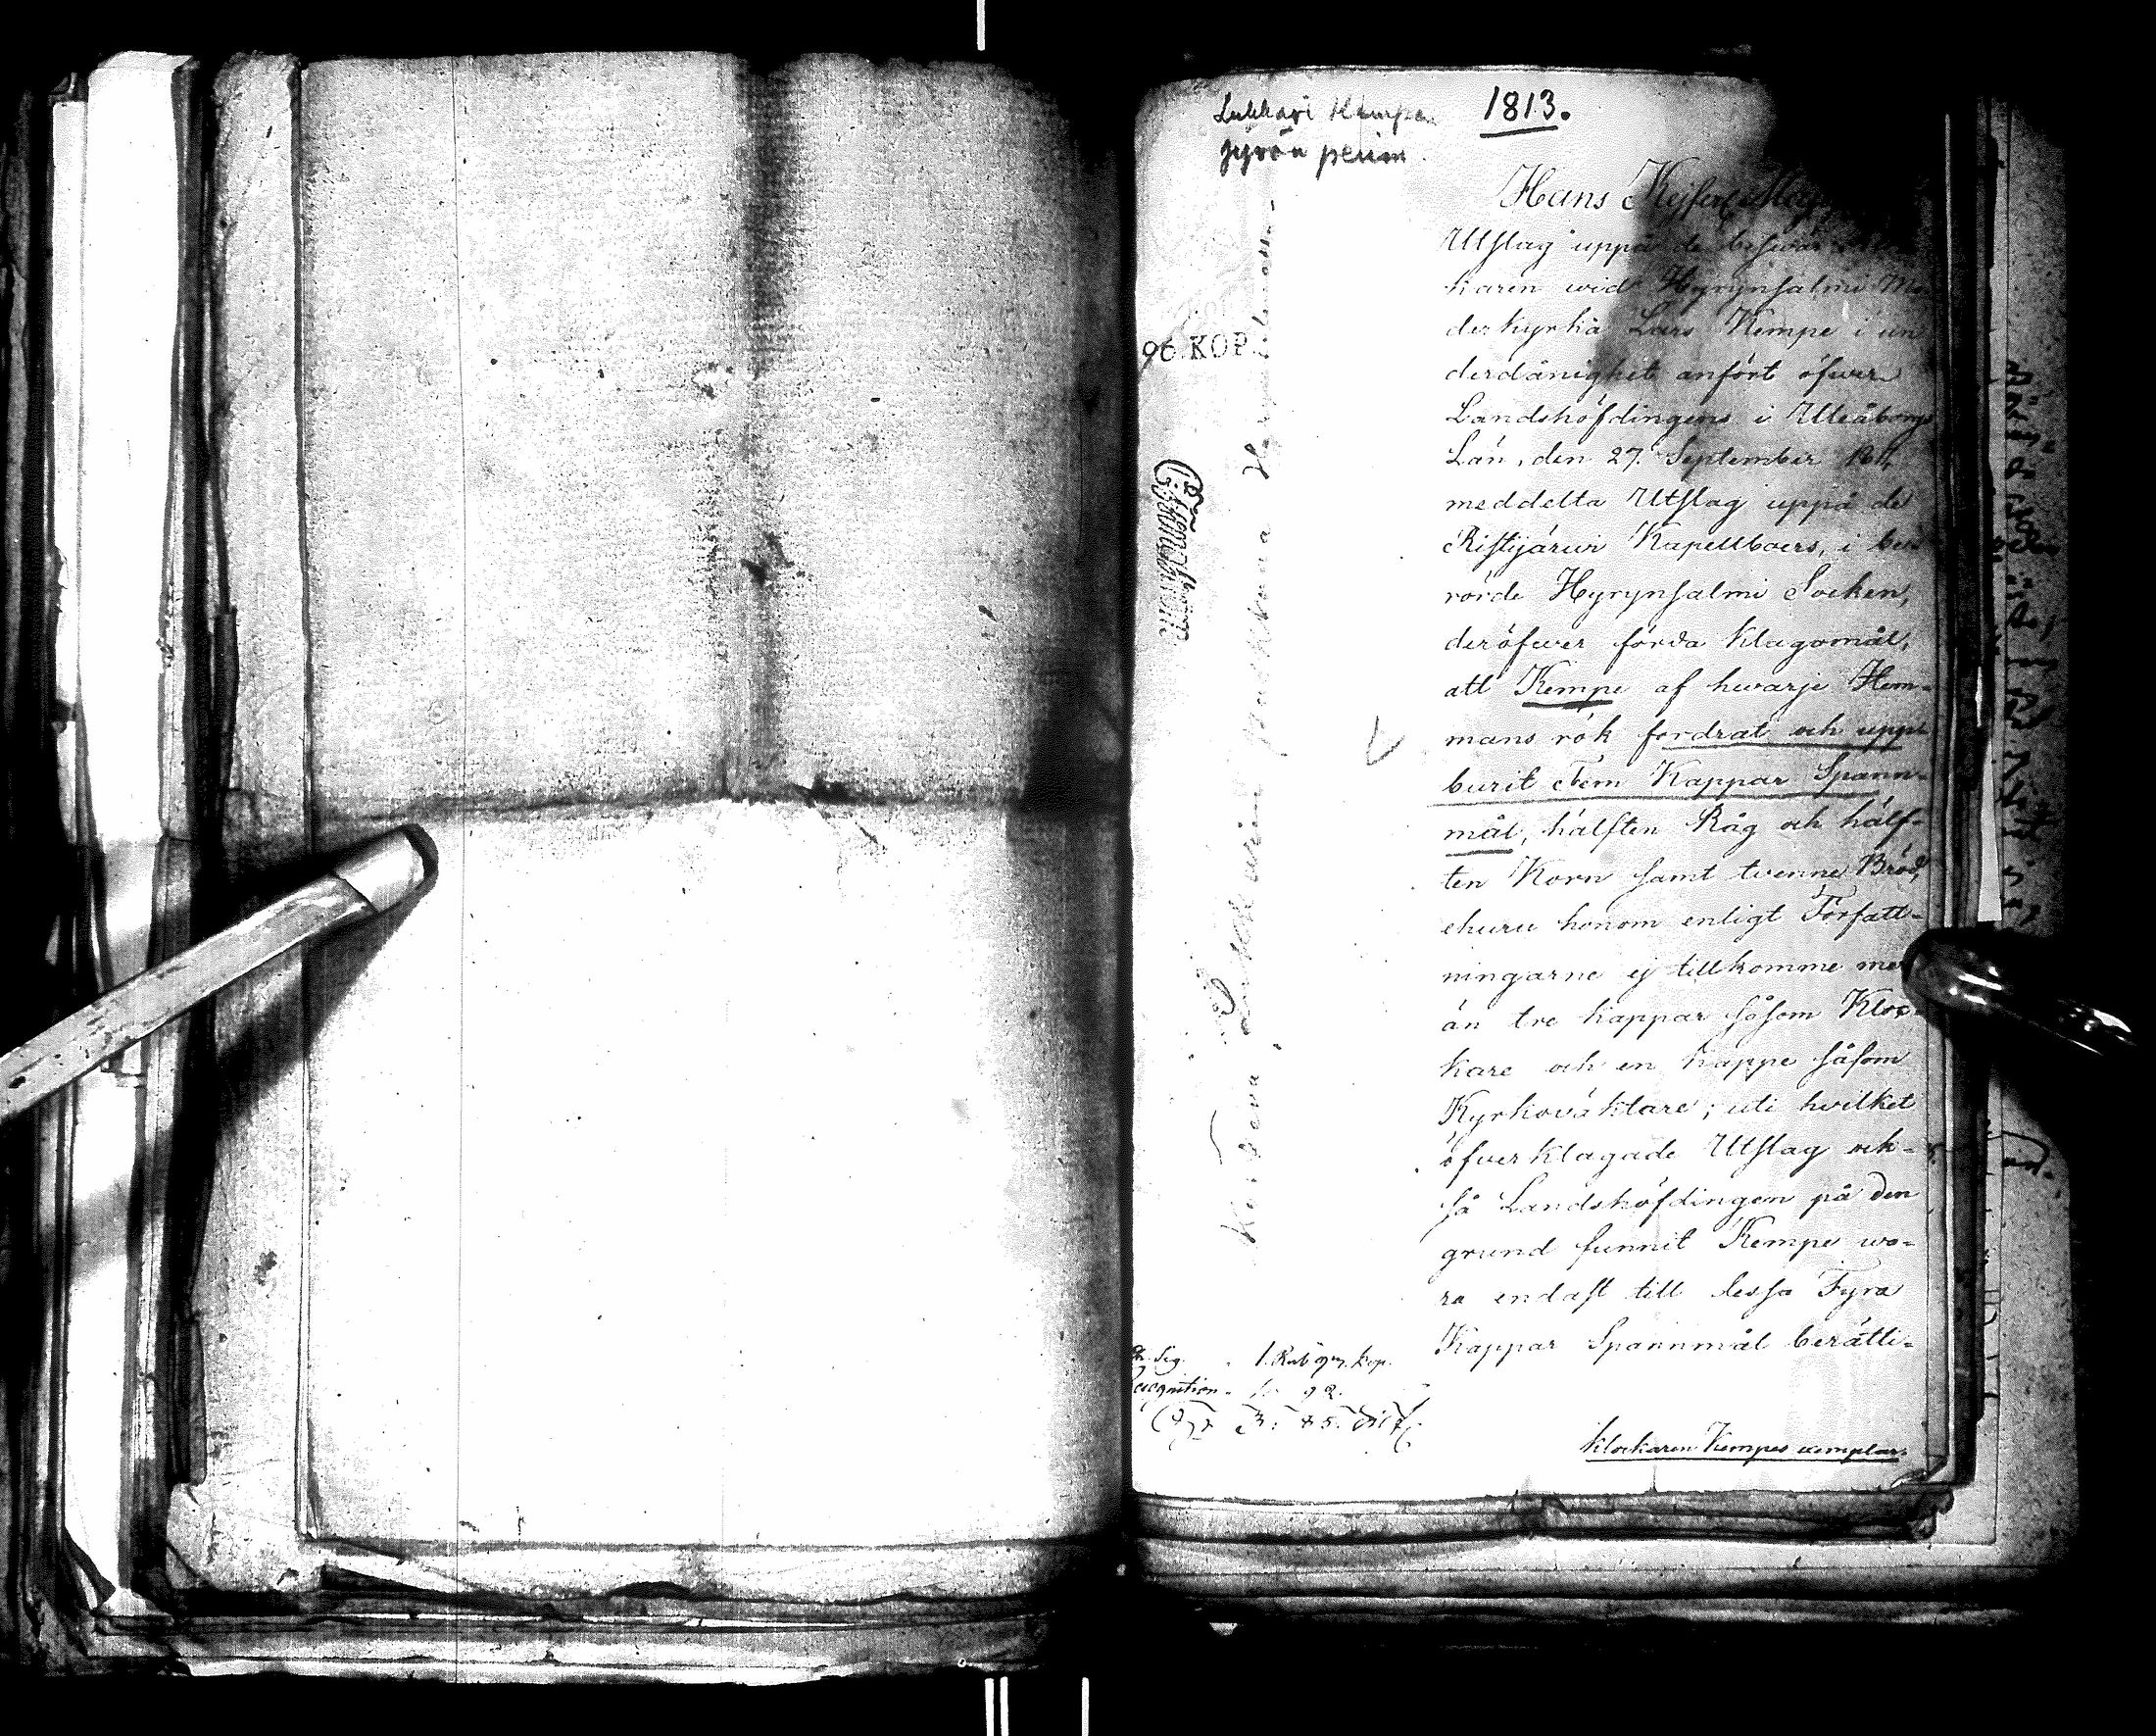 Lukkari Kempe
jyvän perim
1813.
Hans Kejserl. Maj
Utslag uppå de besvär
karen wid Hyrynsalmi Mo-
derkyrka Lars Kempe i un
derdånighet anfört öfwer
Landshöfdingens i Uleåborgs
Län, den 27. September 1811,
meddelta Utslag uppå de
Ristijärwi Kapellboers, i be-
rörde Hyrynsalmi Socken,
deröfwer förda klagomål,
att Kempe af hwarje Hem-
mans rök fordrat och upp-
burit Fem Kappar Spann-
mål, hälften Råg och hälf-
ten Korn samt tvenne Bröd,
ehuru honom enligt Författ-
ningarne ej tillkomme mer
än tre kappar såsom Kloc-
kare och en kappe såsom
Kyrkoväktare; uti hvilket
öfverklagade Utslag ock-
så Landshöfdingen på den
grund funnit Kempe wa-
ra endast till dessa Fyra
Kappar Spannmål berätti-
klockaren Kempes exemplar.
96.KOP.
Sig. 1. Rub 97. kop.
Recognition 92.